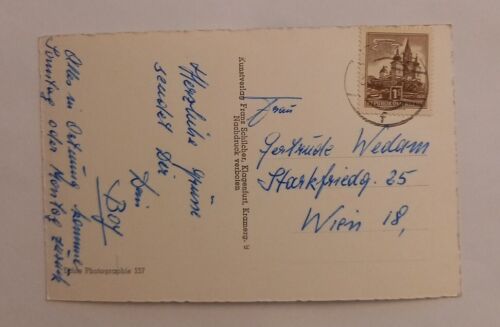 Alles in Ordnung komme
Sonntag oder Montag zurück
Herzliche Grüsse
sendet Dir
Dein
Boy
Echte Photographie 157
Kunstverlag Franz Schilcher, Klagenfurt, Kramerg. 9
Nachdruck verboten
1S
REPUBLIK ÖSTERREICH
Frau
Gertrude Wedam
Starkfriedg. 25
Wien 18,